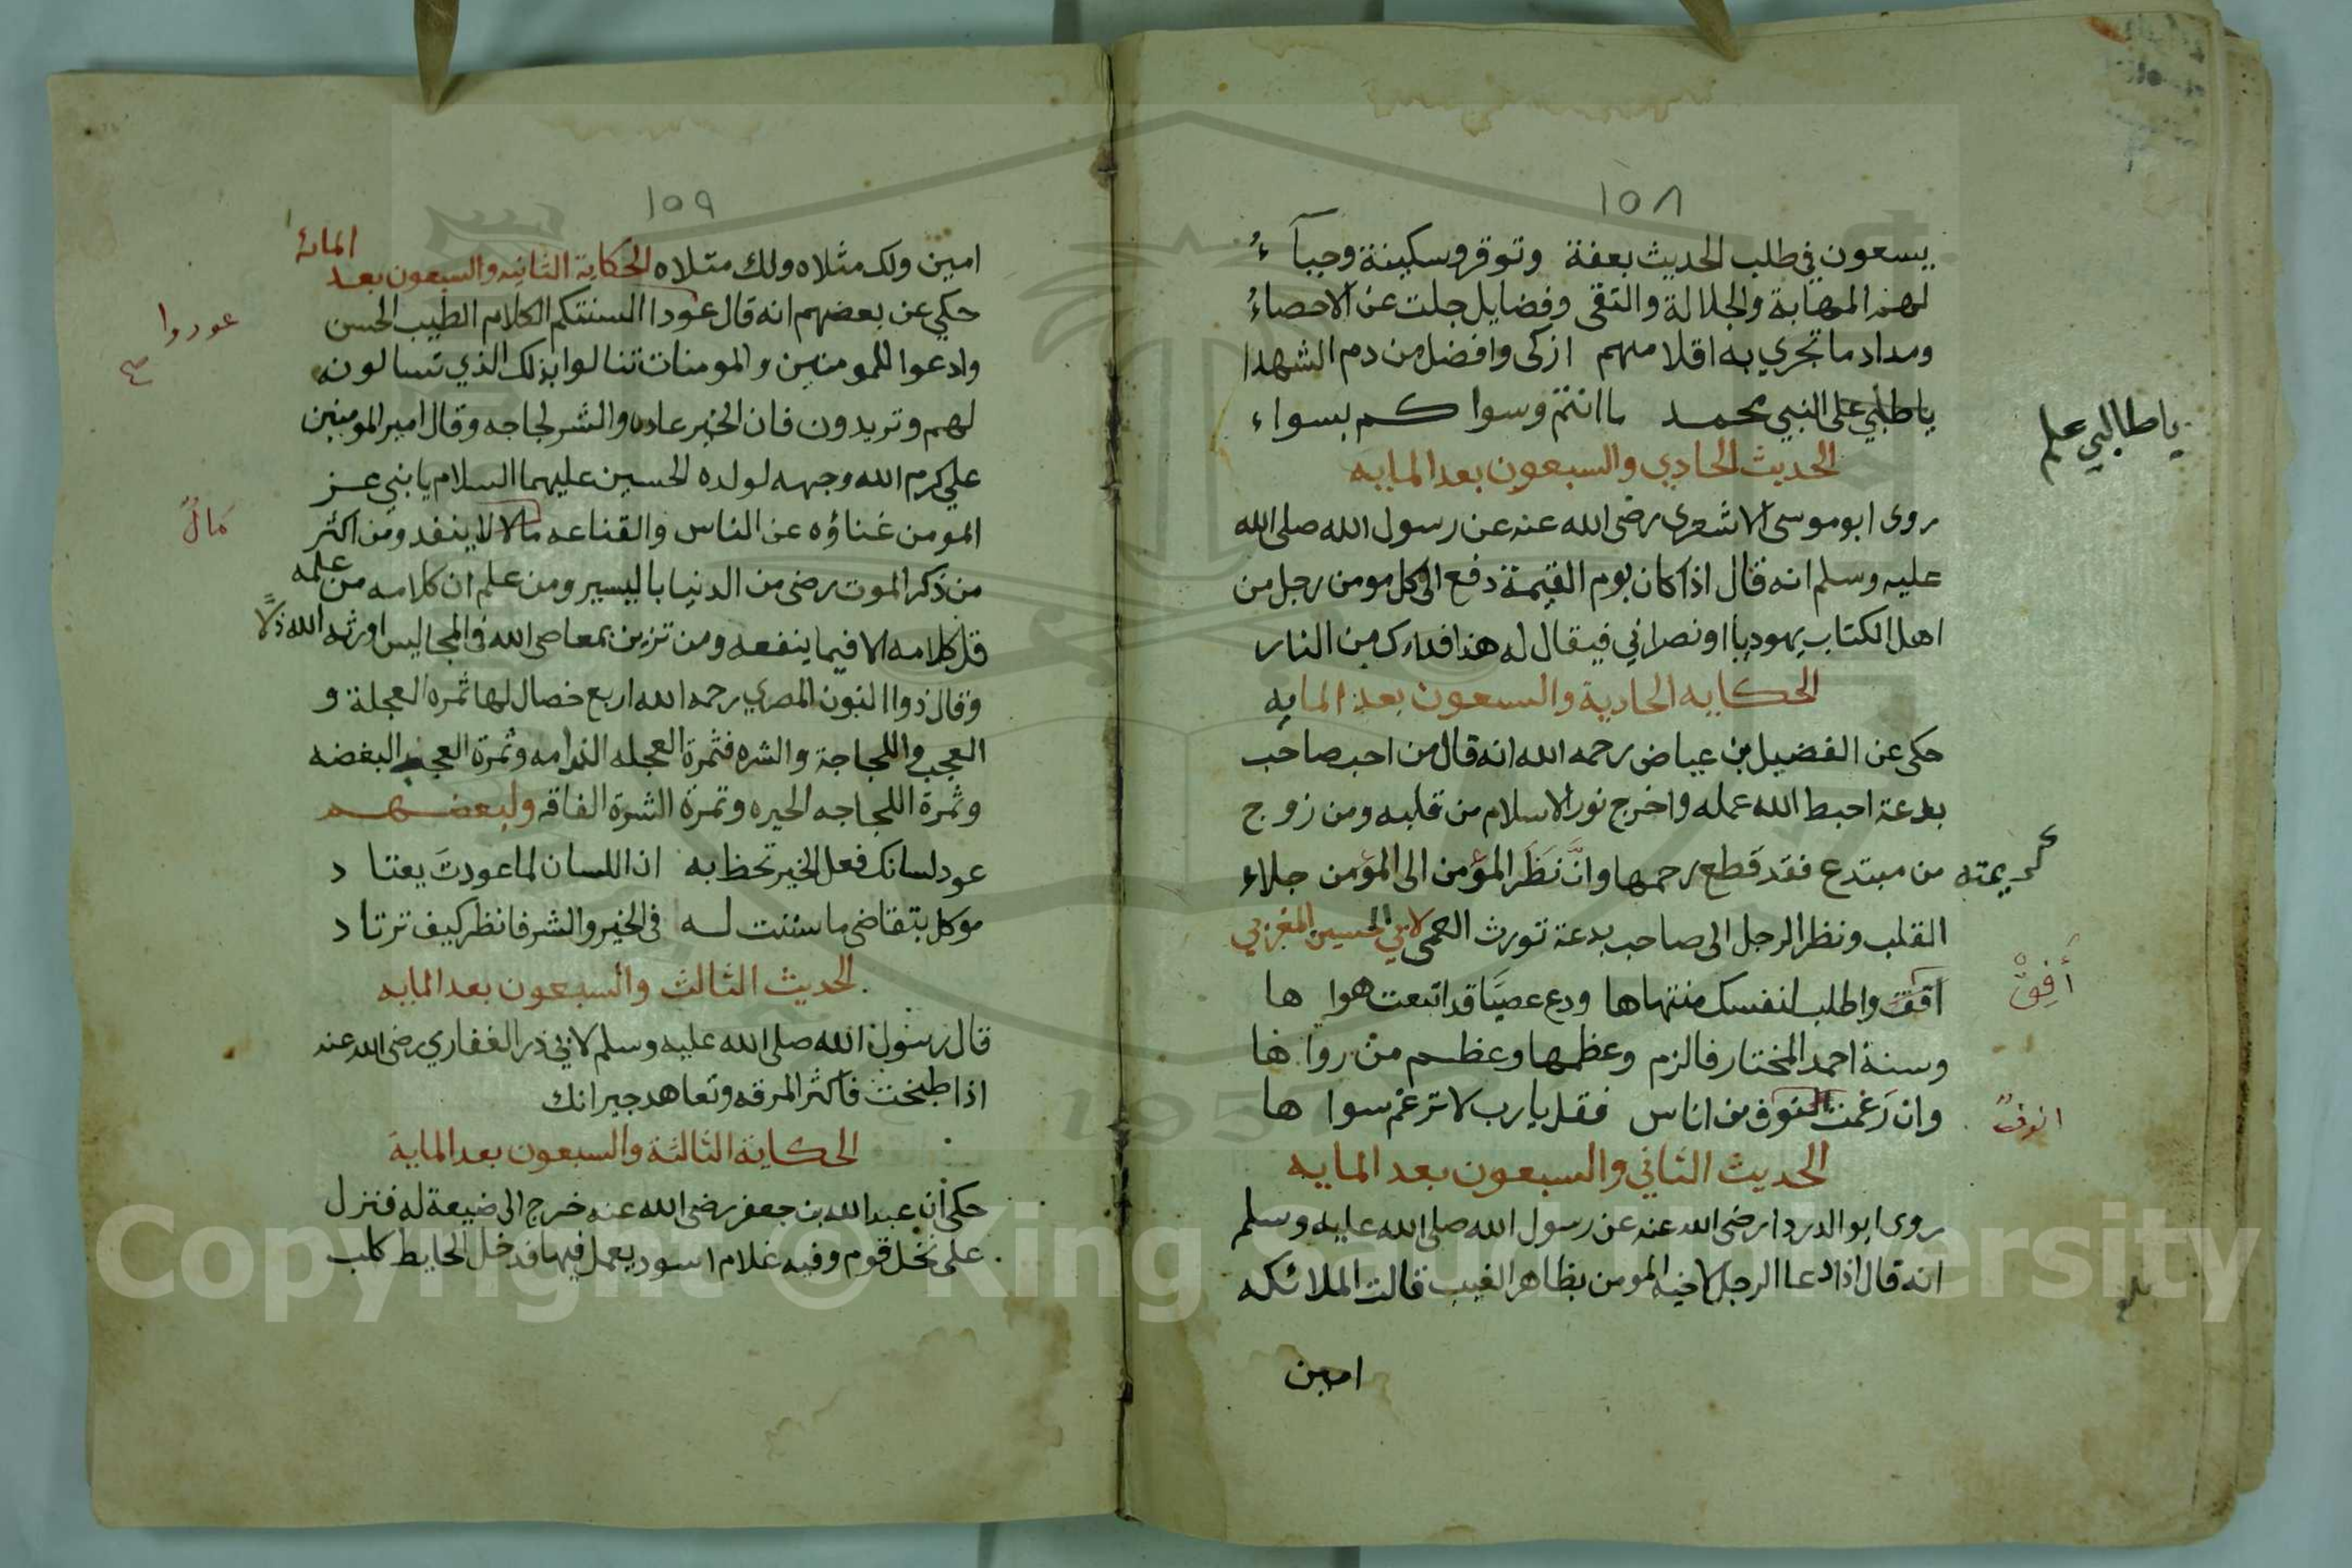 ١٥٨
يسعون في طلب الحديث بعفة وتوقر وسكينة وحيآء
لهم المهابة والجلالة والتقى وفضايل جلت عن الاحصاءُ
ومداد ما تجري به اقلامهم ازكى وافضل من دم الشهدا
ياطلبي على النبي محمد ما انتم وسواكم بسواء
يا طالبي علم
الحديث الحادي والسبعون بعد المايه
روى ابو موسى الاشعري رضى الله عنه عن رسول الله صلى الله
عليه وسلم انه قال اذا كان يوم القيمة دفع الى كل مومن رجل من
اهل الكتاب يهوديا او نصراني فيقال له هذا فداوك من النار
الحكايه الحادية والسبعون بعد المايه
حكى عن الفضيل بن عياض رحمه الله انه قال من احب صاحب
بدعة احبط الله عمله واخرج نور الاسلام من قلبه ومن زوج
كريمته من مبتدع فقد قطع رحمها وانَّ نَظَرَ المؤمن الى المؤمن جلاء
القلب ونظر الرجل الى صاحب بدعة تورث العمى لابي الحسين المغربي
افقت واطلب لنفسك منتهاها ودع عصيًا قد اتبعت هواها
أَفِقْ
وسنة احمد المختار فالزم وعظمها وعظم من رواها
وان رَغمت انوف من اناس فقل يارب لا ترغم سواها
انوفٌ
الحديث الثاني والسبعون بعد المايه
روى ابو الدردا رضى الله عنه عن رسول الله صلى الله عليه وسلم
انه قال اذا دعا الرجل لاخيه المومن بظاهر الغيب قالت الملائكه
بلغ
امين
١٥٩
امين ولك مثلاه ولك مثلاه الحكاية الثانيه والسبعون بعد المائة
حكي عن بعضهم انه قال عودا السنتكم الكلام الطيب الحسن
عودوا
صح
وادعوا للمومنين والمومنات تنالوا بذلك الذي تسالون
لهم وتريدون فان الخير عاده والشر لجاجه وقال امير المومنين
علي كرم الله وجهه لولده الحسين عليهما السلام يا بني عز
المومن غناؤه عن الناس والقناعه مالا لا ينفد ومن اكثر
مالٌ
من ذكر الموت رضى من الدنيا باليسير ومن علم ان كلامه من علمه
قل كلامه الا فيما ينفعه ومن تزين بمعاصى الله في المجاليس اورثه الله ذلًا
وقال ذوا النون المصري رحمه الله اربع خصال لها ثمره العجلة و
العجب واللجاجة والشره فثمرة العجله الندامه وثمرة العجب البغضه
وثمرة اللجاجه الحيره وثمرة الشرة الفاقه ولبعضهم
عود لسانك فعل الخير تحظ به ان اللسان لما عودتَ يعتاد
موكل بتقاضى ما سننت له في الخير والشر فانظر كيف ترتاد
الحديث الثالث والسبعون بعد المايه
قال رسول الله صلى الله عليه وسلم لابي ذر الغفاري رضى الله عنه
اذا طبخت فاكثر المرقه وتعاهد جيرانك
الحكاية الثالثة والسبعون بعد الماية
حكى أن عبد الله بن جعفر رضى الله عنه خرج الى ضيعة له فنزل
على نخل قوم وفيه غلام اسود يعمل فيها فدخل الحايط كلب
Copyright © King Saud University
1957